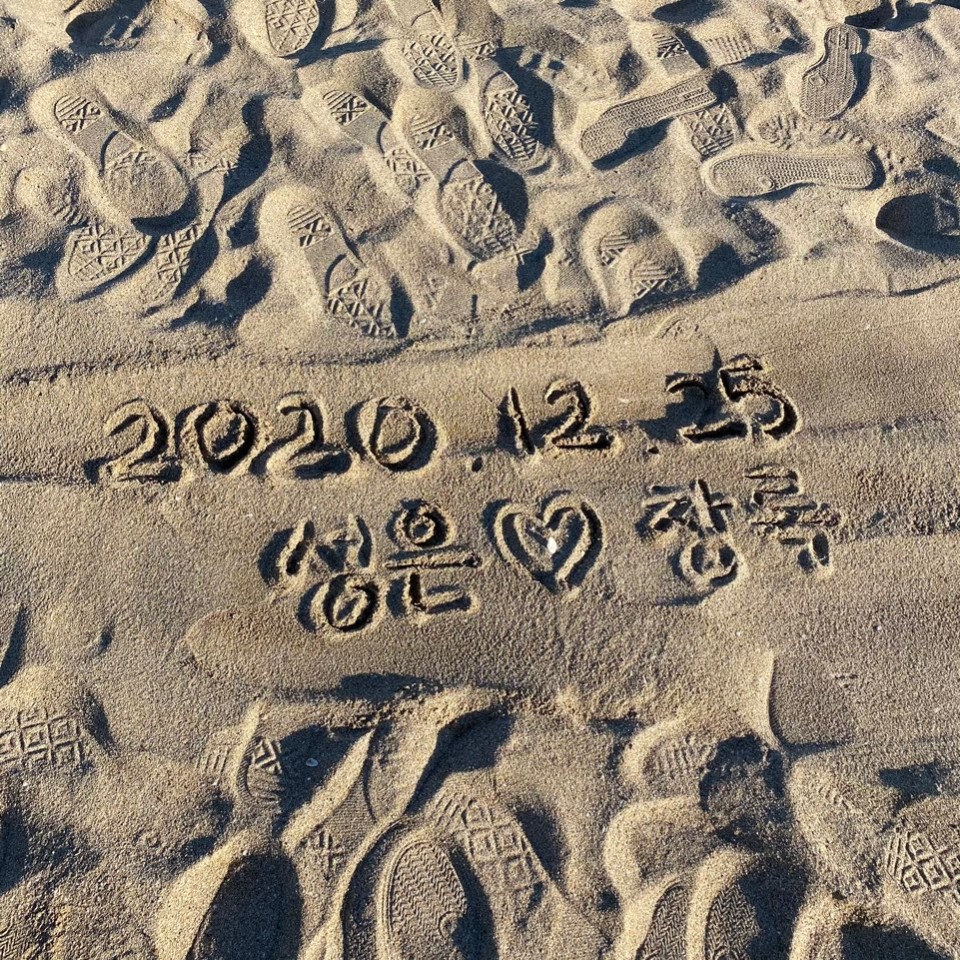 2020.12.25
성은♡장록